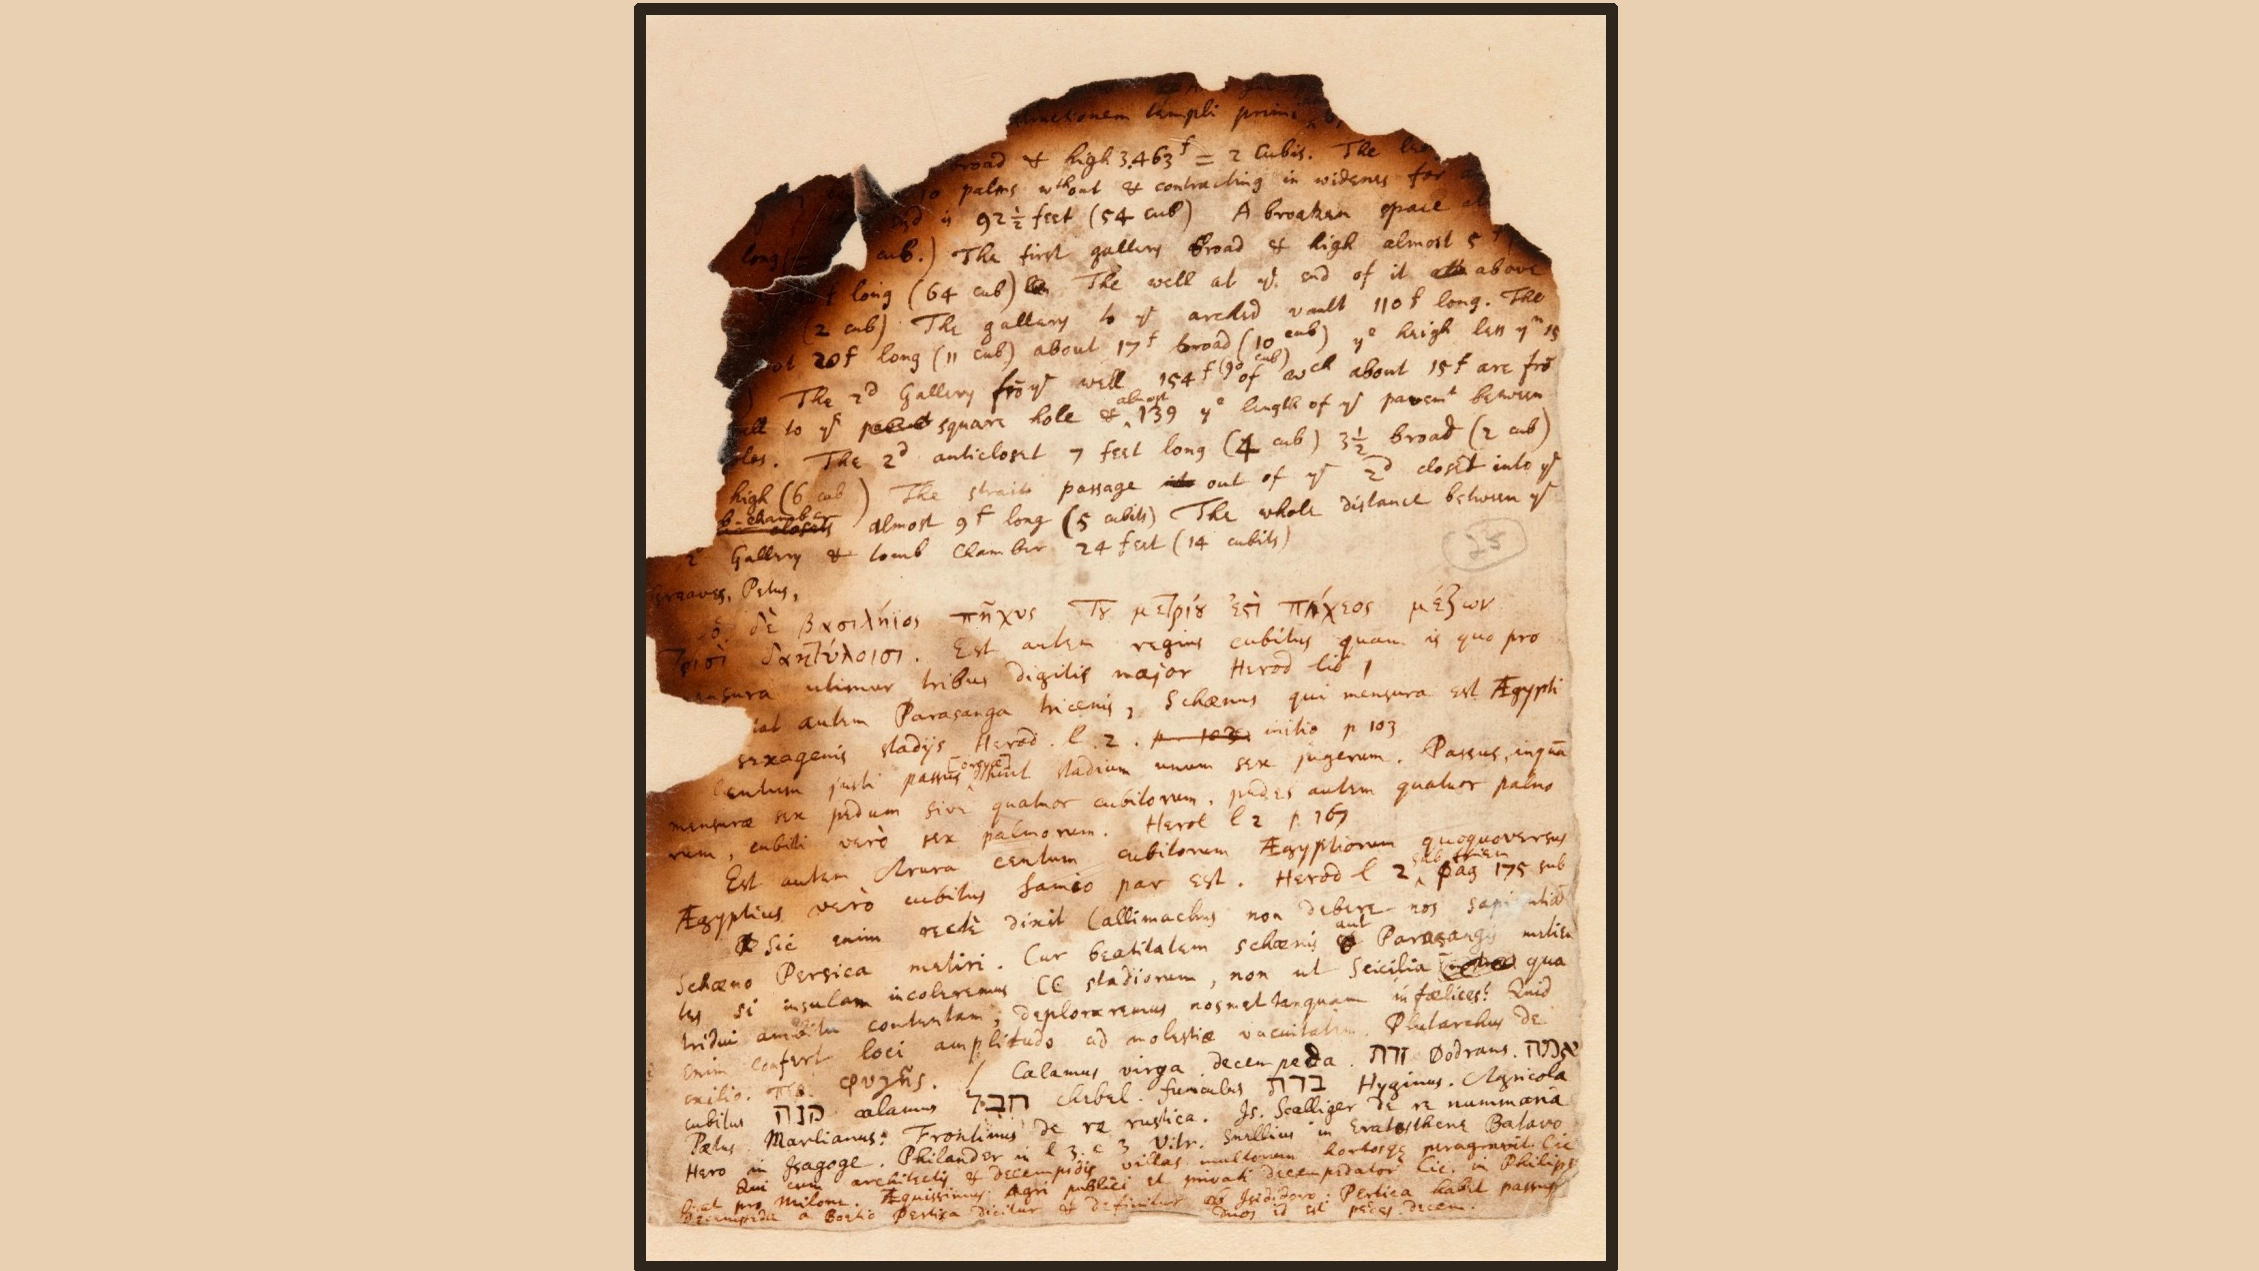 structionem templi primi
broad & high 3.463f = 2 Cubis. The
palms wthout & contracting in widenes for
end is 92½ feet (54 cub) A broaken space
long cub.) The first gallery broad & high almost 5
long (64 cub) The well at ye end of it above
(2 cub) The gallery to ye arched vault 110f long. The
20f long (11 cub) about 17f broad (10 cub) ye heigh less yn 15
The 2d Gallery frō ye well 154f (90 cub) of wch about 15f are frō
to ye square hole & almost 139 ye length of ye pavemt between
The 2d anticloset 7 feet long (4 cub) 3½ broad (2 cub)
high (6 cub) The strait passage out of ye 2d closet into ye
b-chamber closets almost 9f long (5 cubits) The whole distance between ye
2 Gallery & tomb Chamber 24 feet (14 cubits)
25
Greaves, Petus,
δὲ βασιλήϊος πῆχυς τȣ͂ μετρίȣ ἐςὶ πήχεος μέζων
τρισὶ δακτύλοισι. Est autem regius cubitus quam is quo pro
mensura utimur tribus digitis major Herod lib 1
autem Parasanga tricenis, Schœnus qui mensura est Ægypti
sexagenis stadijs Herod. l. 2. p. 103. initio p 103
Centum justi passus [orgyæ] stadium unum sex jugerum. Passus, inquā
mensuræ sex pedum sive quatuor cubitorum, pedes autem quatuor palmo
rum, cubiti verò sex palmorum. Herod l 2 p. 167
Est autem Arura centum cubitorum Ægyptiorum quoquoversus
Ægyptius verò cubitus Samio par est. Herod l 2, sub finem pag 175 sub
Sic enim rectè dixit Callimachus non debere nos sapientiā
Schœno Persica metiri. Cur beatitatem schœnis aut Parasangis metien
tes si insulam incoleremus CC stadiorum, non ut Seicilia qua
tridui ambitu contentam, deploraremus nosmet tanquam infœlices? Quid
enim confert loci amplitudo ad molestiæ vacuitatem. Plutarchus de
exilio. φυγῆς. / Calamus virga decempeda. זרת Dodrans. אמה
cubitus קנה calamus חבל chebel. funiculus ברת Hyginus. Agricola
Pætus Marlianus: Frontinus de re rustica. Js. Scalliger de re nummaria
Hero in Isagoge. Philander in l 3. c 3 Vitr. Snellius in Eratosthene Batavo
Qui cum architectis & decempedis villas multorum hortosqꝫ peragravit. Cic
pro Milone. Æquissimus Agri publici et privati decempedator Cic. in Philipp
Decempeda a Boetio Pertica dicitur & definitur ab Isidoro: Pertica habet passus
duos id est pedes decem.